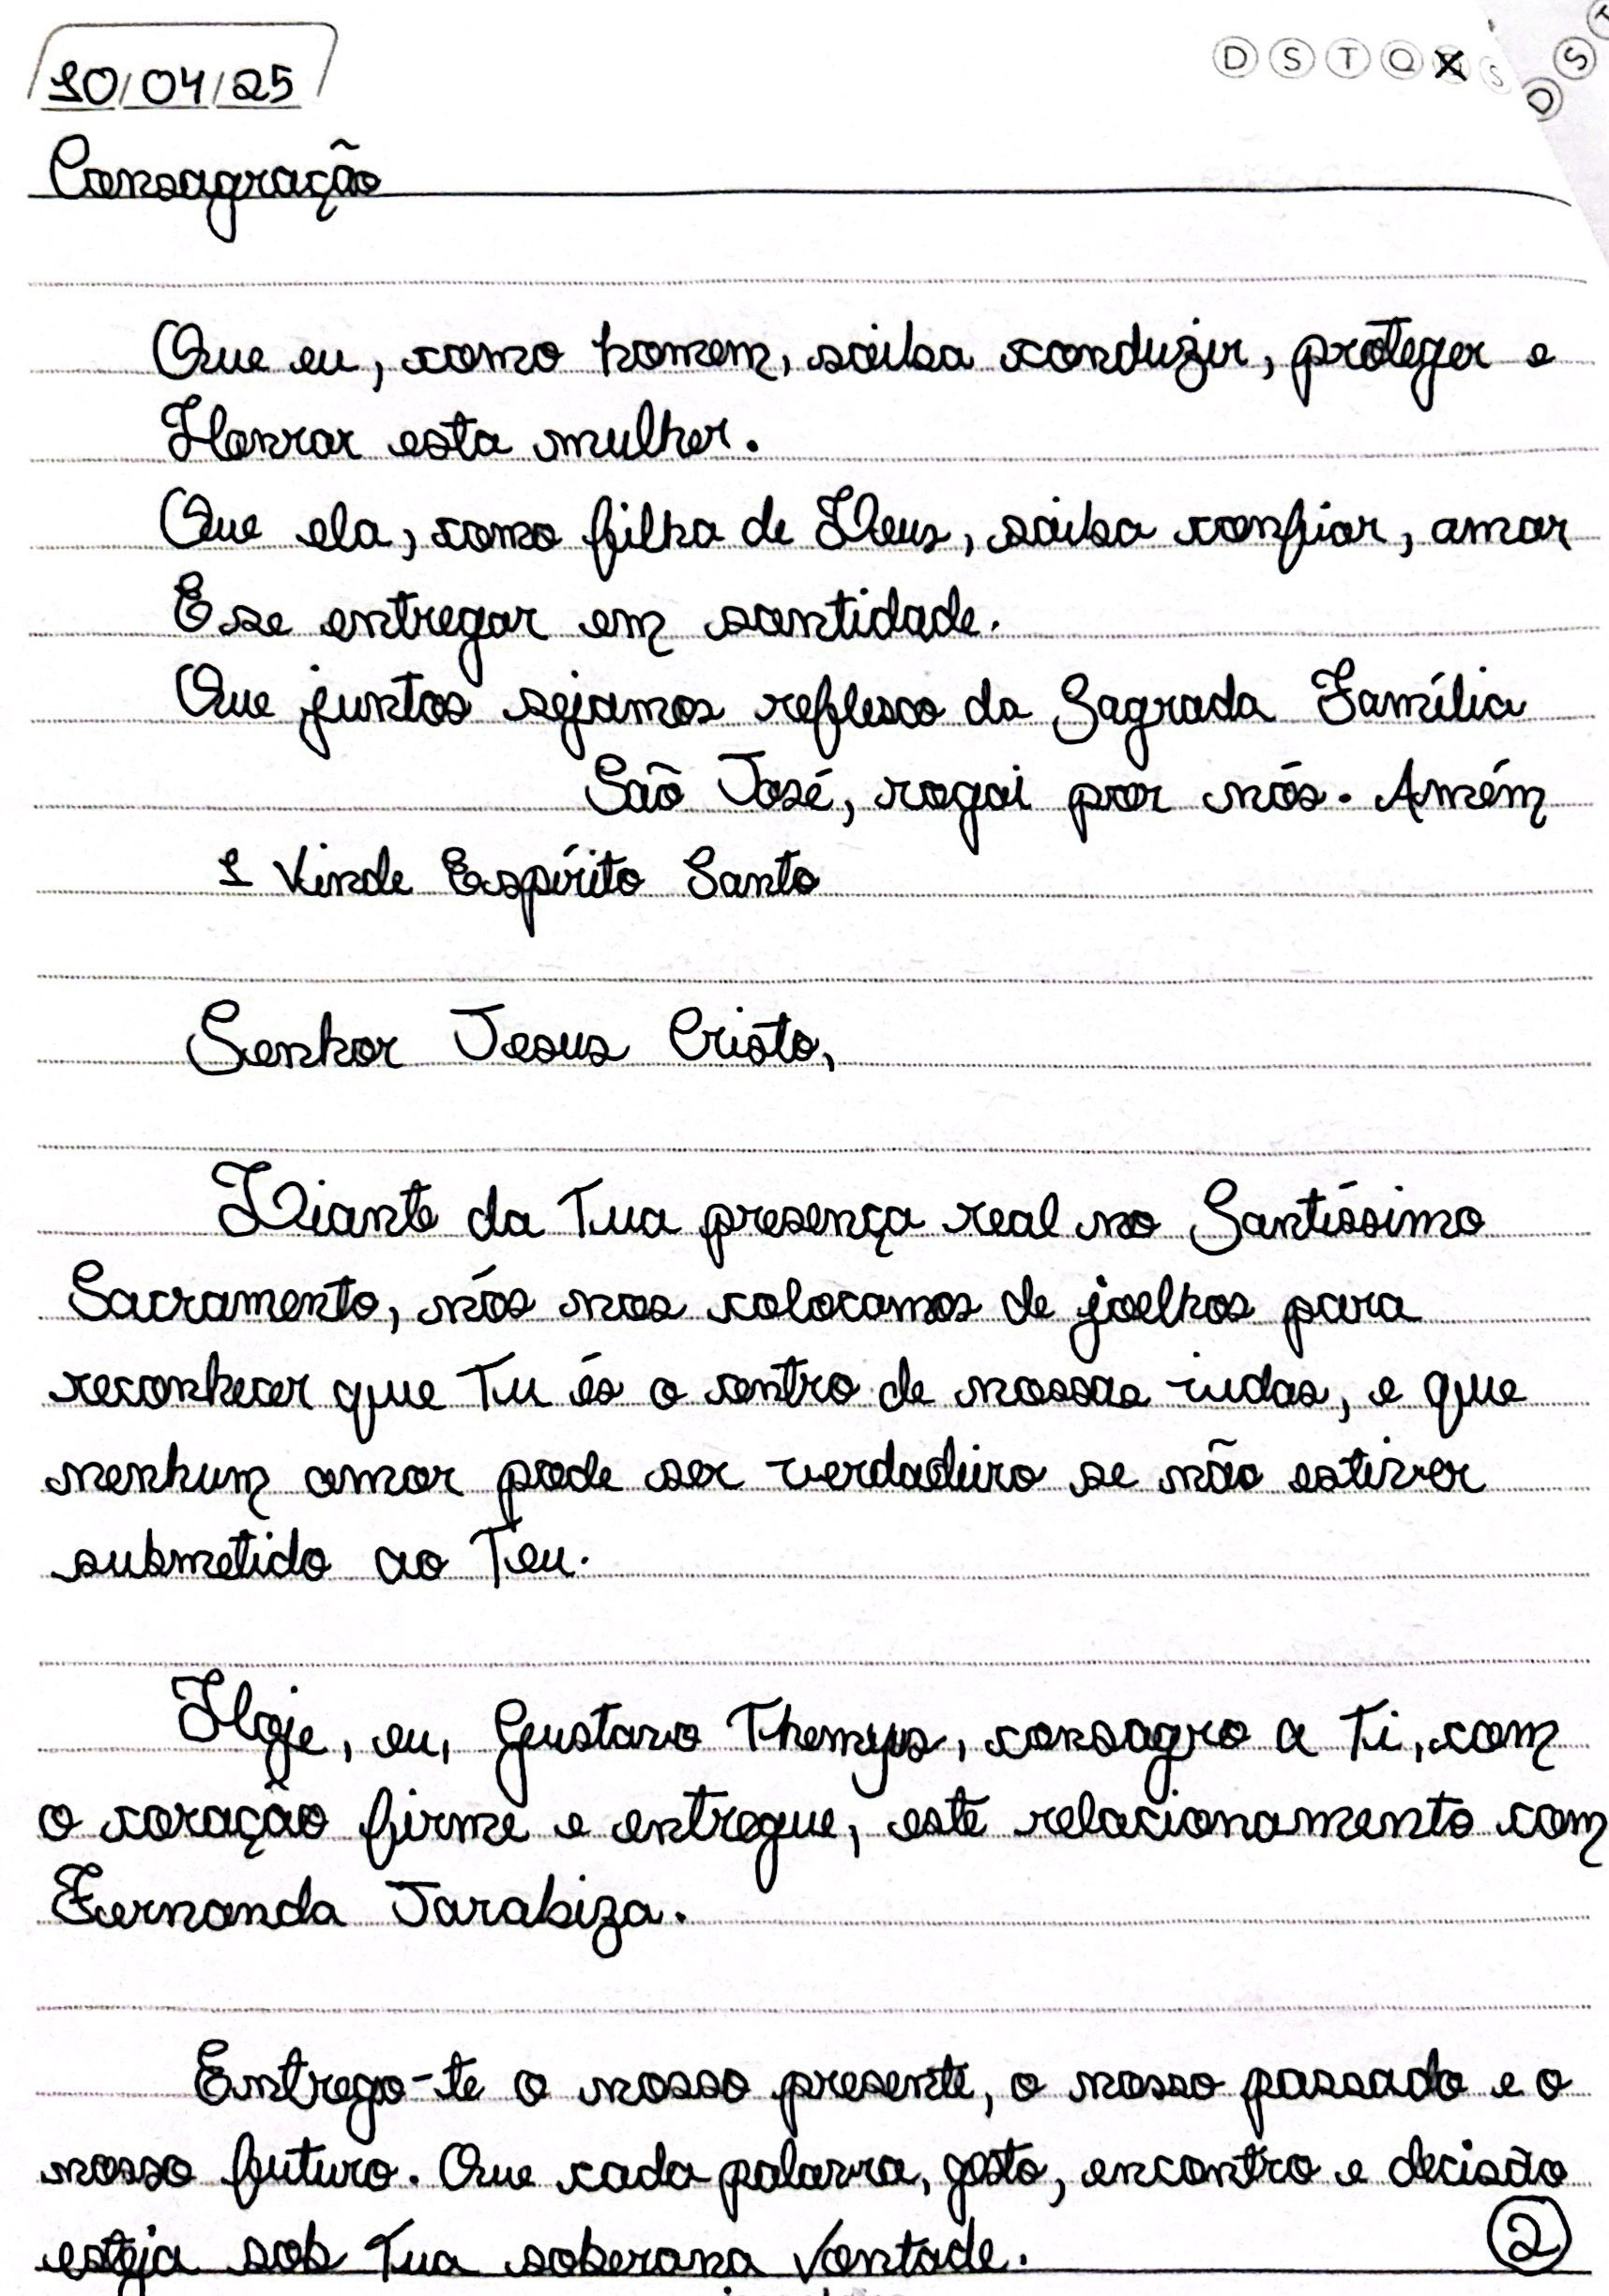 10/04/25
D S T Q Q S
D S T
Consagração
Que eu, como homem, saiba conduzir, proteger e
Honrar esta mulher.
Que ela, como filha de Deus, saiba confiar, amar
E se entregar em santidade.
Que juntos sejamos reflexo da Sagrada Família
São José, rogai por nós. Amém
1 Vinde Espírito Santo
Senhor Jesus Cristo,
Diante da Tua presença real no Santíssimo
Sacramento, nós nos colocamos de joelhos para
reconhecer que Tu és o centro de nossas vidas, e que
nenhum amor pode ser verdadeiro se não estiver
submetido ao Teu.
Hoje, eu, Gustavo Themys, consagro a Ti, com
o coração firme e entregue, este relacionamento com
Fernanda Jarabiza.
Entrego-te o nosso presente, o nosso passado e o
nosso futuro. Que cada palavra, gesto, encontro e decisão
esteja sob Tua soberana Vontade.
2